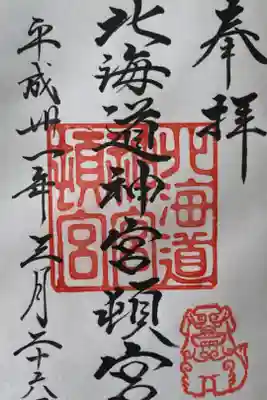 奉拝
北海道神宮頓宮
北海道神宮頓宮
平成卅一年三月二十六